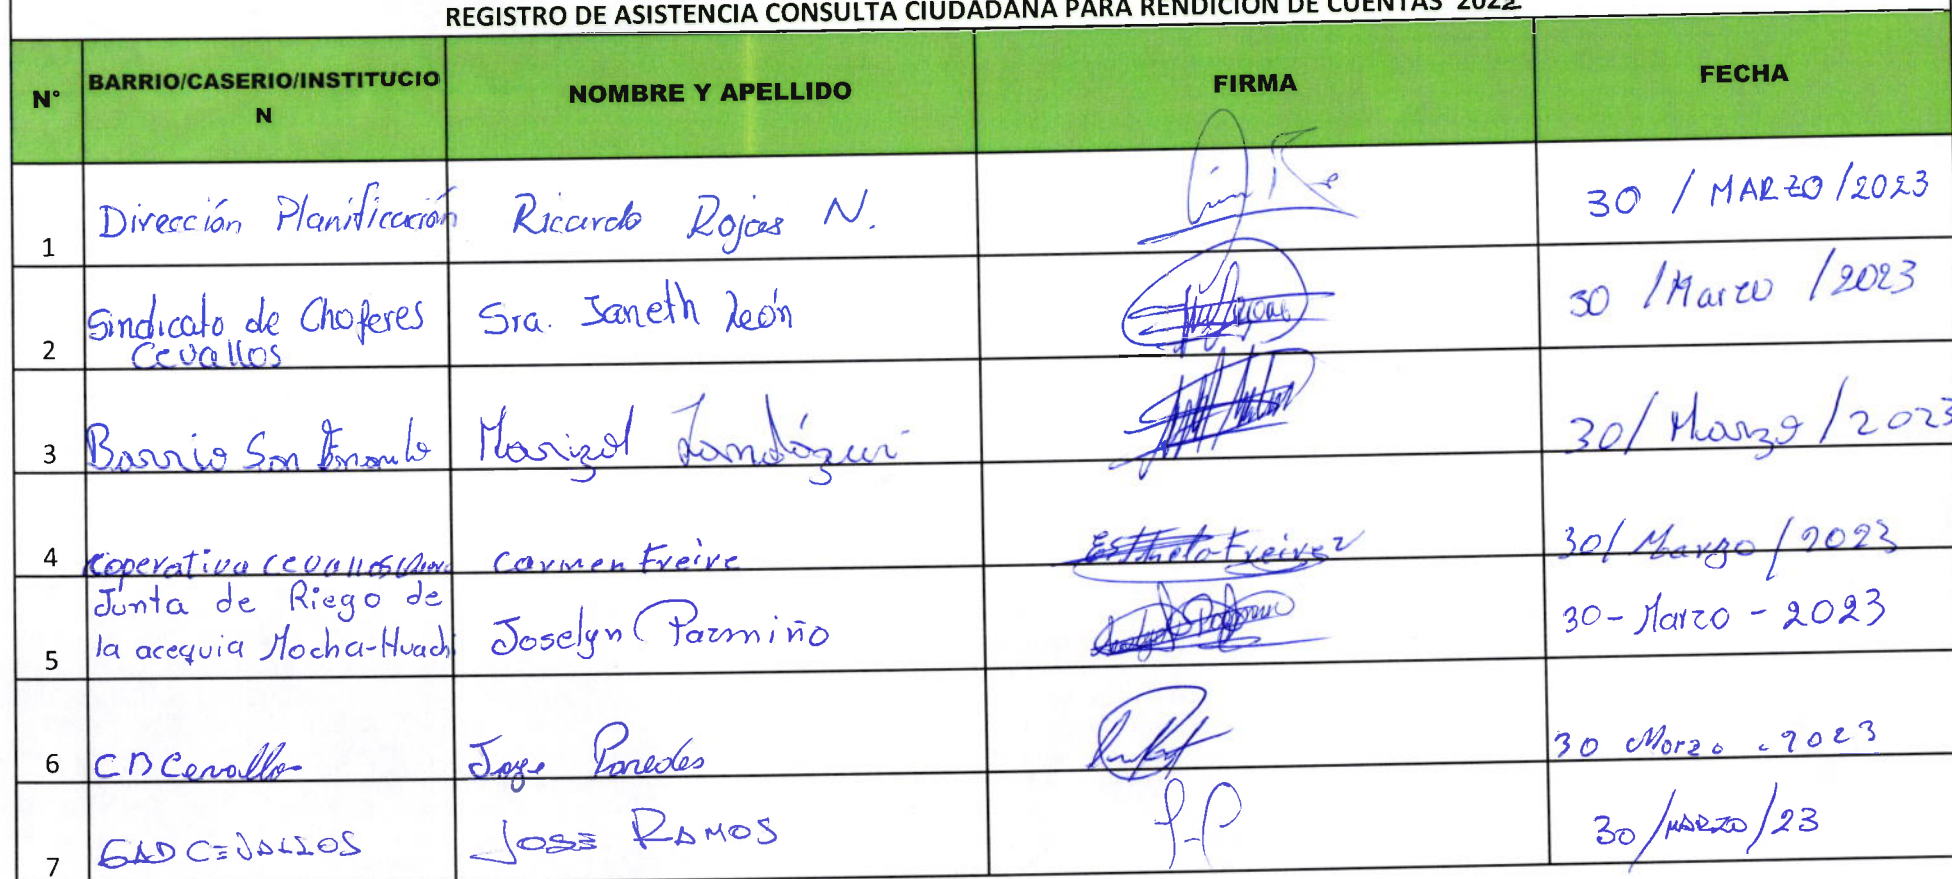 REGISTRO DE ASISTENCIA CONSULTA CIUDADANA PARA RENDICIÓN DE CUENTAS 2022
N° BARRIO/CASERIO/INSTITUCIO NOMBRE Y APELLIDO FIRMA FECHA
N
1 Dirección Planificación Ricardo Rojas N. 30 / MARZO /2023
Sindicato de Choferes Sra. Janeth León 30 /Marzo /2023
2 Cevallos
3 Barrio San Marizol Landázuri 30/ Marzo /2023
4 Coperativa Cevallos Carmen Freire Freire 30/ Marzo /2023
Junta de Riego de
5 la acequia Mocha-Huachi Joselyn Parmiño 30-Marzo-2023
6 CB Cevallos Jorge Paredes 30 Marzo .2023
7 GAD CEVALLOS JOSE RAMOS 30/MARZO/23